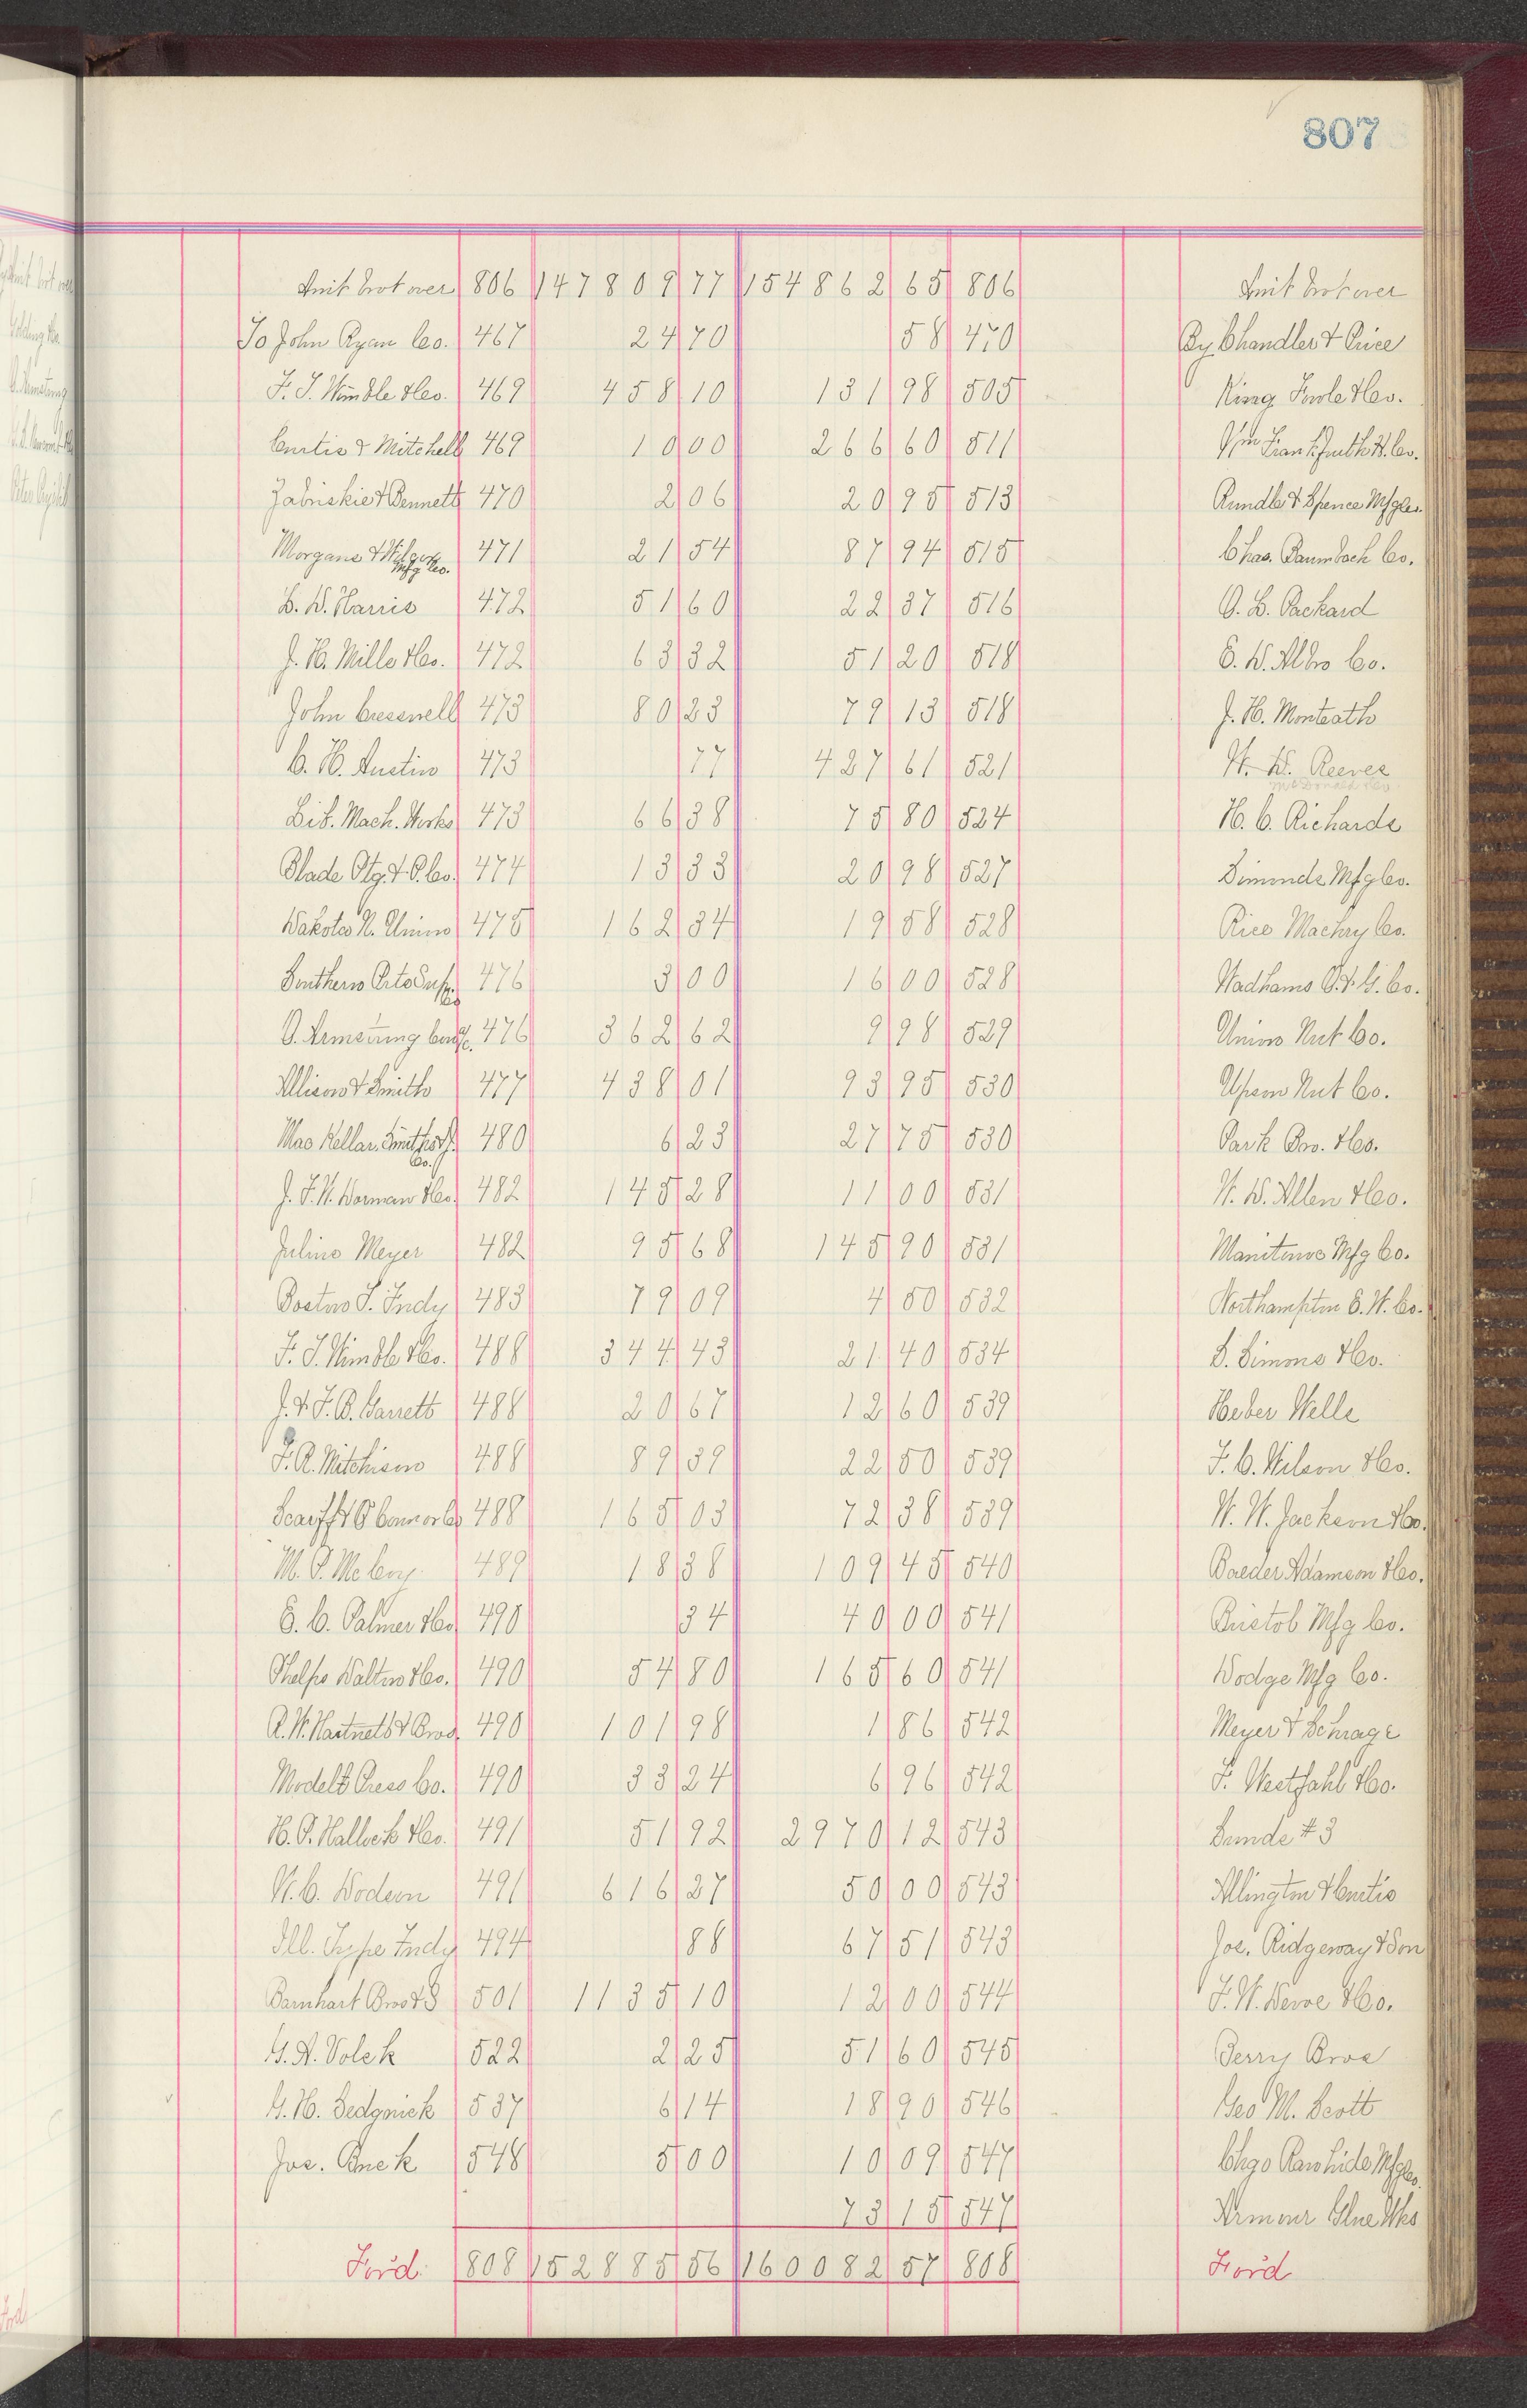 807
Amt brot over 806 147809 77 154862 65 806 Amt brot over
To John Ryan Co. 467 24 70 58 470 By Chandler & Price
F. T. Wimble & Co. 469 458 10 131 98 505 King Fowle & Co.
Curtis & Mitchell 469 10 00 266 60 511 Wm Frankfurth H. Co.
Zabriskie & Bennett 470 2 06 20 95 513 Rundle & Spence Mfg Co.
Morgans & Wilcox Mfg Co. 471 21 54 87 94 515 Chas. Baumbach Co.
B. D. Harris 472 51 60 22 37 516 O. L. Packard
J. H. Mills & Co. 472 63 32 51 20 518 E. D. Albro Co.
John Cresswell 473 80 23 79 13 518 J. H. Monteath
C. H. Austin 473 77 427 61 521 W. D. Reeves
McDonald & Co
Lib. Mach. Works 473 66 38 75 80 524 H. C. Richards
Blade Ptg. & P. Co. 474 13 33 20 98 527 Simonds Mfg Co.
Dakota N. Union 475 162 34 19 58 528 Rice Machry Co.
Southern Ptrs Sup. Co. 476 3 00 16 00 528 Wadhams O. & G. Co.
Armstrong 476 362 62 9 98 529 Union Nut Co.
Allison & Smith 477 438 01 93 95 530 Upson Nut Co.
Mac Kellar Smiths & J. Co. 480 6 23 27 75 530 Park Bro. & Co.
J. F. W. Dorman & Co. 482 145 28 11 00 531 W. D. Allen & Co.
Julius Meyer 482 95 68 145 90 531 Manitowoc Mfg Co.
Boston T. Fndy 483 79 09 4 50 532 Northampton E. W. Co.
F. T. Wimble & Co. 488 344 43 21 40 534 S. Simons & Co.
J. & F. B. Garrett 488 20 67 12 60 539 Heber Wells
F. A. Hitchison 488 89 39 22 50 539 F. C. Wilson & Co.
Scarff & O'Connor Co 488 165 03 72 38 539 W. W. Jackson & Co.
M. P. McCoy 489 18 38 109 45 540 Baeder Adamson & Co.
E. C. Palmer & Co 490 34 40 00 541 Bristol Mfg Co.
Phelps Dalton & Co. 490 54 80 165 60 541 Dodge Mfg Co.
R. W. Hartnett & Bros. 490 101 98 1 86 542 Meyer & Schrage
Model Press Co. 490 33 24 6 96 542 F. Westfahl & Co.
H. P. Hallock & Co. 491 51 92 2970 12 543 Sunds #3
W. C. Dodson 491 616 27 50 00 543 Allington & Curtis
Ill. Type Fndy 494 88 67 51 543 Jos. Ridgeway & Son
Barnhart Bros & S 501 1135 10 12 00 544 F. W. Devoe & Co.
G. A. Volck 522 2 25 51 60 545 Perry Bros
G. H. Sedgwick 537 6 14 18 90 546 Geo M. Scott
Jos. Buck 548 5 00 10 09 547 Chgo Rawhide Mfg Co.
73 15 547 Armour Glue Wks
Ford. 808 152885 56 160082 57 808 Ford